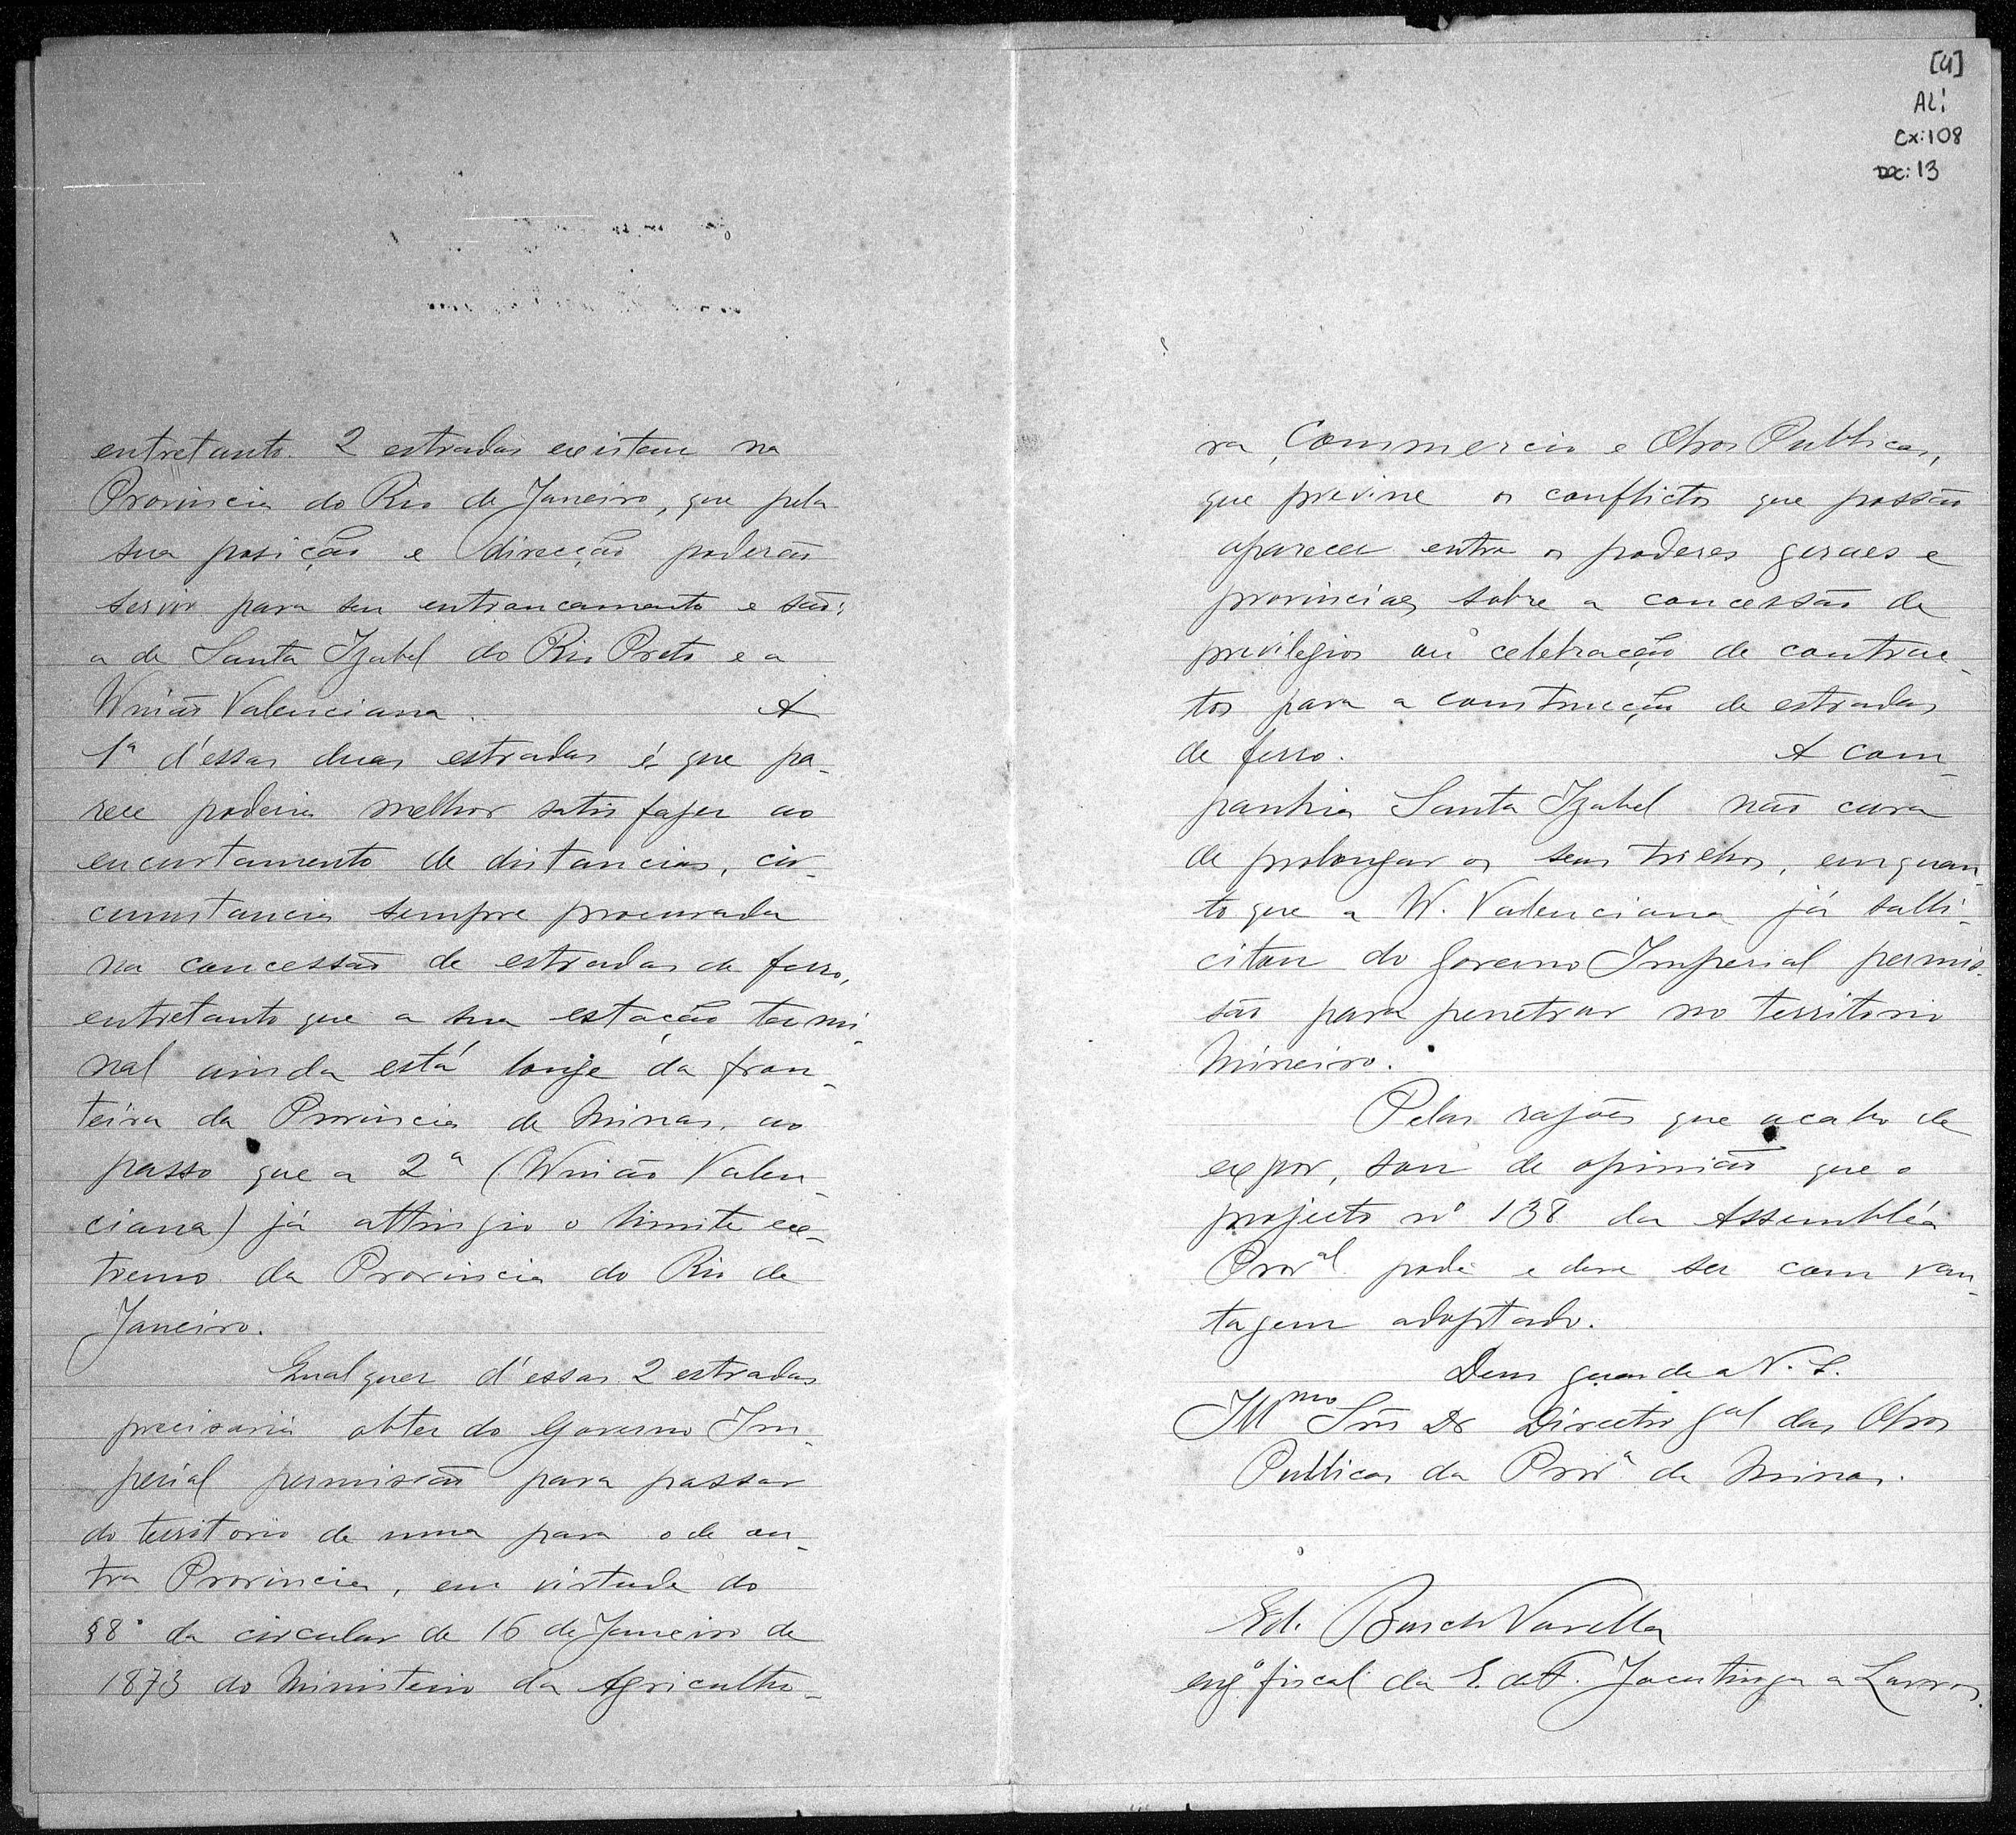 entretanto 2 estradas existem na
Provincia do Rio de Janeiro, que pela
sua posição e direcção poderão
servir para seu entroncamento e são:
a de Santa Izabel do Rio Preto e a
União Valenciana. A
1ª d'essas duas estradas é que pa-
rece poderia melhor satisfazer ao
encurtamento de distancias, cir-
cumstancia sempre procurada
na concessão de estradas de ferro,
entretanto que a sua estação termi-
nal ainda está longe da fron-
teira da Provincia de Minas, ao
passo que a 2ª (União Valen-
ciana) já attingio o limite ex-
tremo da Provincia do Rio de
Janeiro.
Qualquer d'essas 2 estradas
precisaria obter do Governo Im-
perial permissão para passar
do territorio de uma para o de ou-
tra Provincia, em virtude do
§8º da circular de 16 de Janeiro de
1873 do Ministerio da Agricultu-
[4]
AL!
Cx: 108
Doc: 13
ra, Commercio e Obras Publicas,
que previne os conflictos que possão
aparecer entre os poderes geraes e
provinciaes sobre a concessão de
privilegios ou celebração de contrac-
tos para a construcção de estradas
de ferro. A com-
panhia Santa Izabel não cura
de prolongar os seus trilhos, emquan-
to que a U. Valenciana já solli-
citou do Governo Imperial permis-
são para penetrar no territorio
Mineiro.
Pelas razões que acabo de
expor, sou de opinião que o
projecto nº 138 da Assembléa
Provᵃˡ pode e deve ser com van-
tagem adoptado.
Deus guarde a V. S.
Illᵐᵒ Snr Dr Director gal das Obras
Publicas da Provª de Minas.
Ed. Busch Varella
engº fiscal da E. de F. Jacutinga a Lavras.